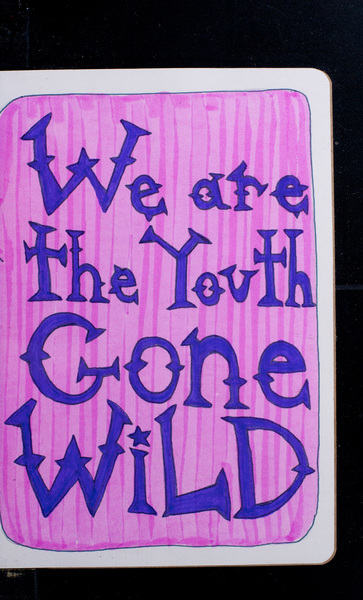 We are
the Youth
Gone
WiLD